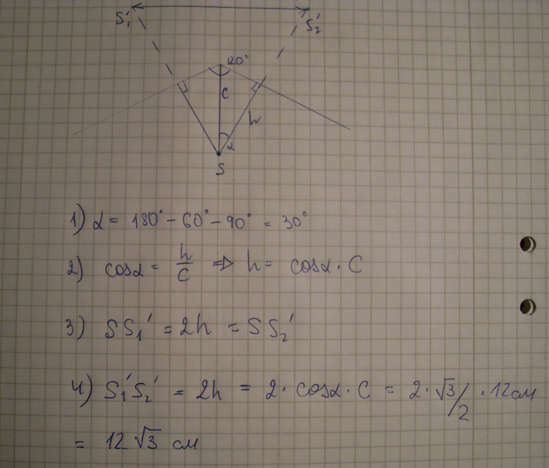 S₁' S₂'
120°
C
h
α
S
1) α = 180° - 60° - 90° = 30°
2) cosα = h/C ⇒ h = cosα · C
3) SS₁' = 2h = SS₂'
4) S₁'S₂' = 2h = 2 · cosα · C = 2 · √3/2 · 12 см
= 12√3 см